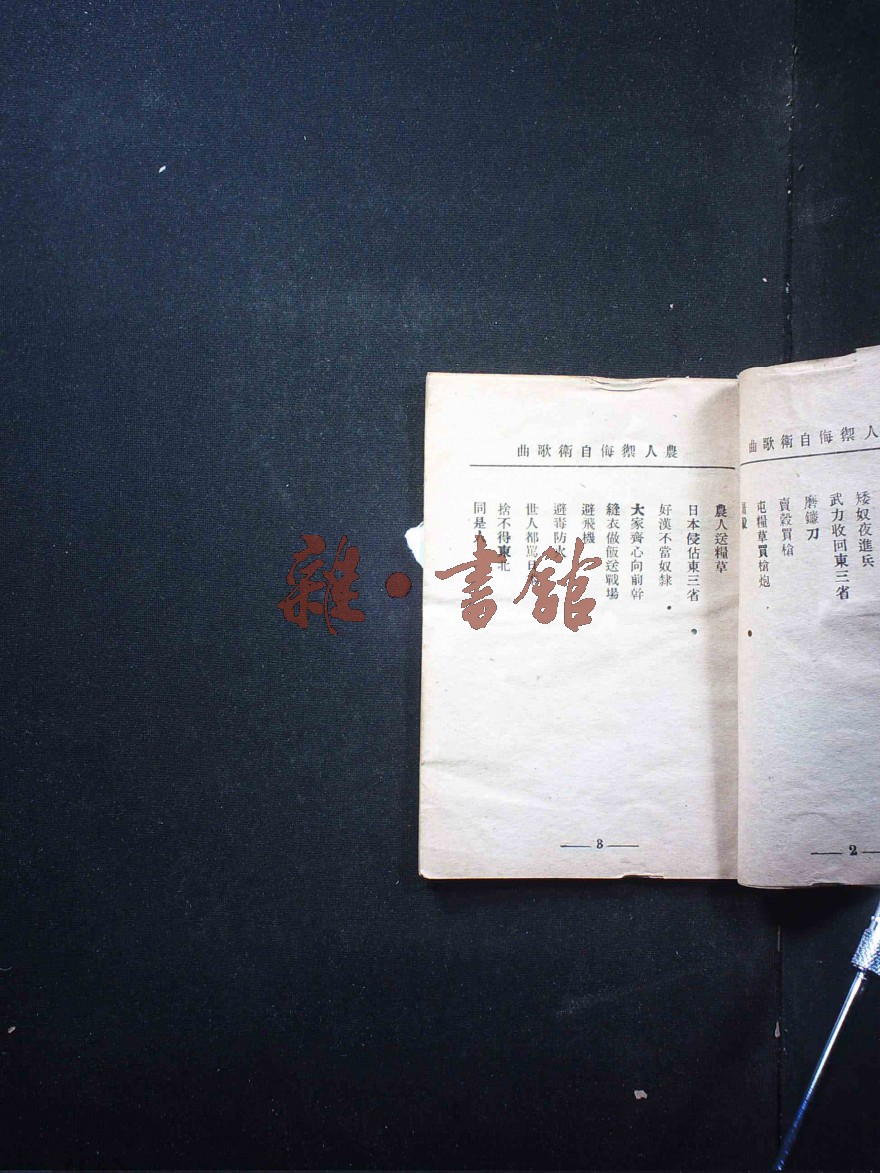 農人禦侮自衛歌曲
矮奴夜進兵
武力收回東三省
磨鐮刀
賣穀買槍
屯糧草買槍炮
2
農人禦侮自衛歌曲
農人送糧草
日本侵佔東三省
好漢不當奴隸
大家齊心向前幹
縫衣做飯送戰場
避飛機
避毒防火
世人都罵日
捨不得東北
同是人
3
雜·書館